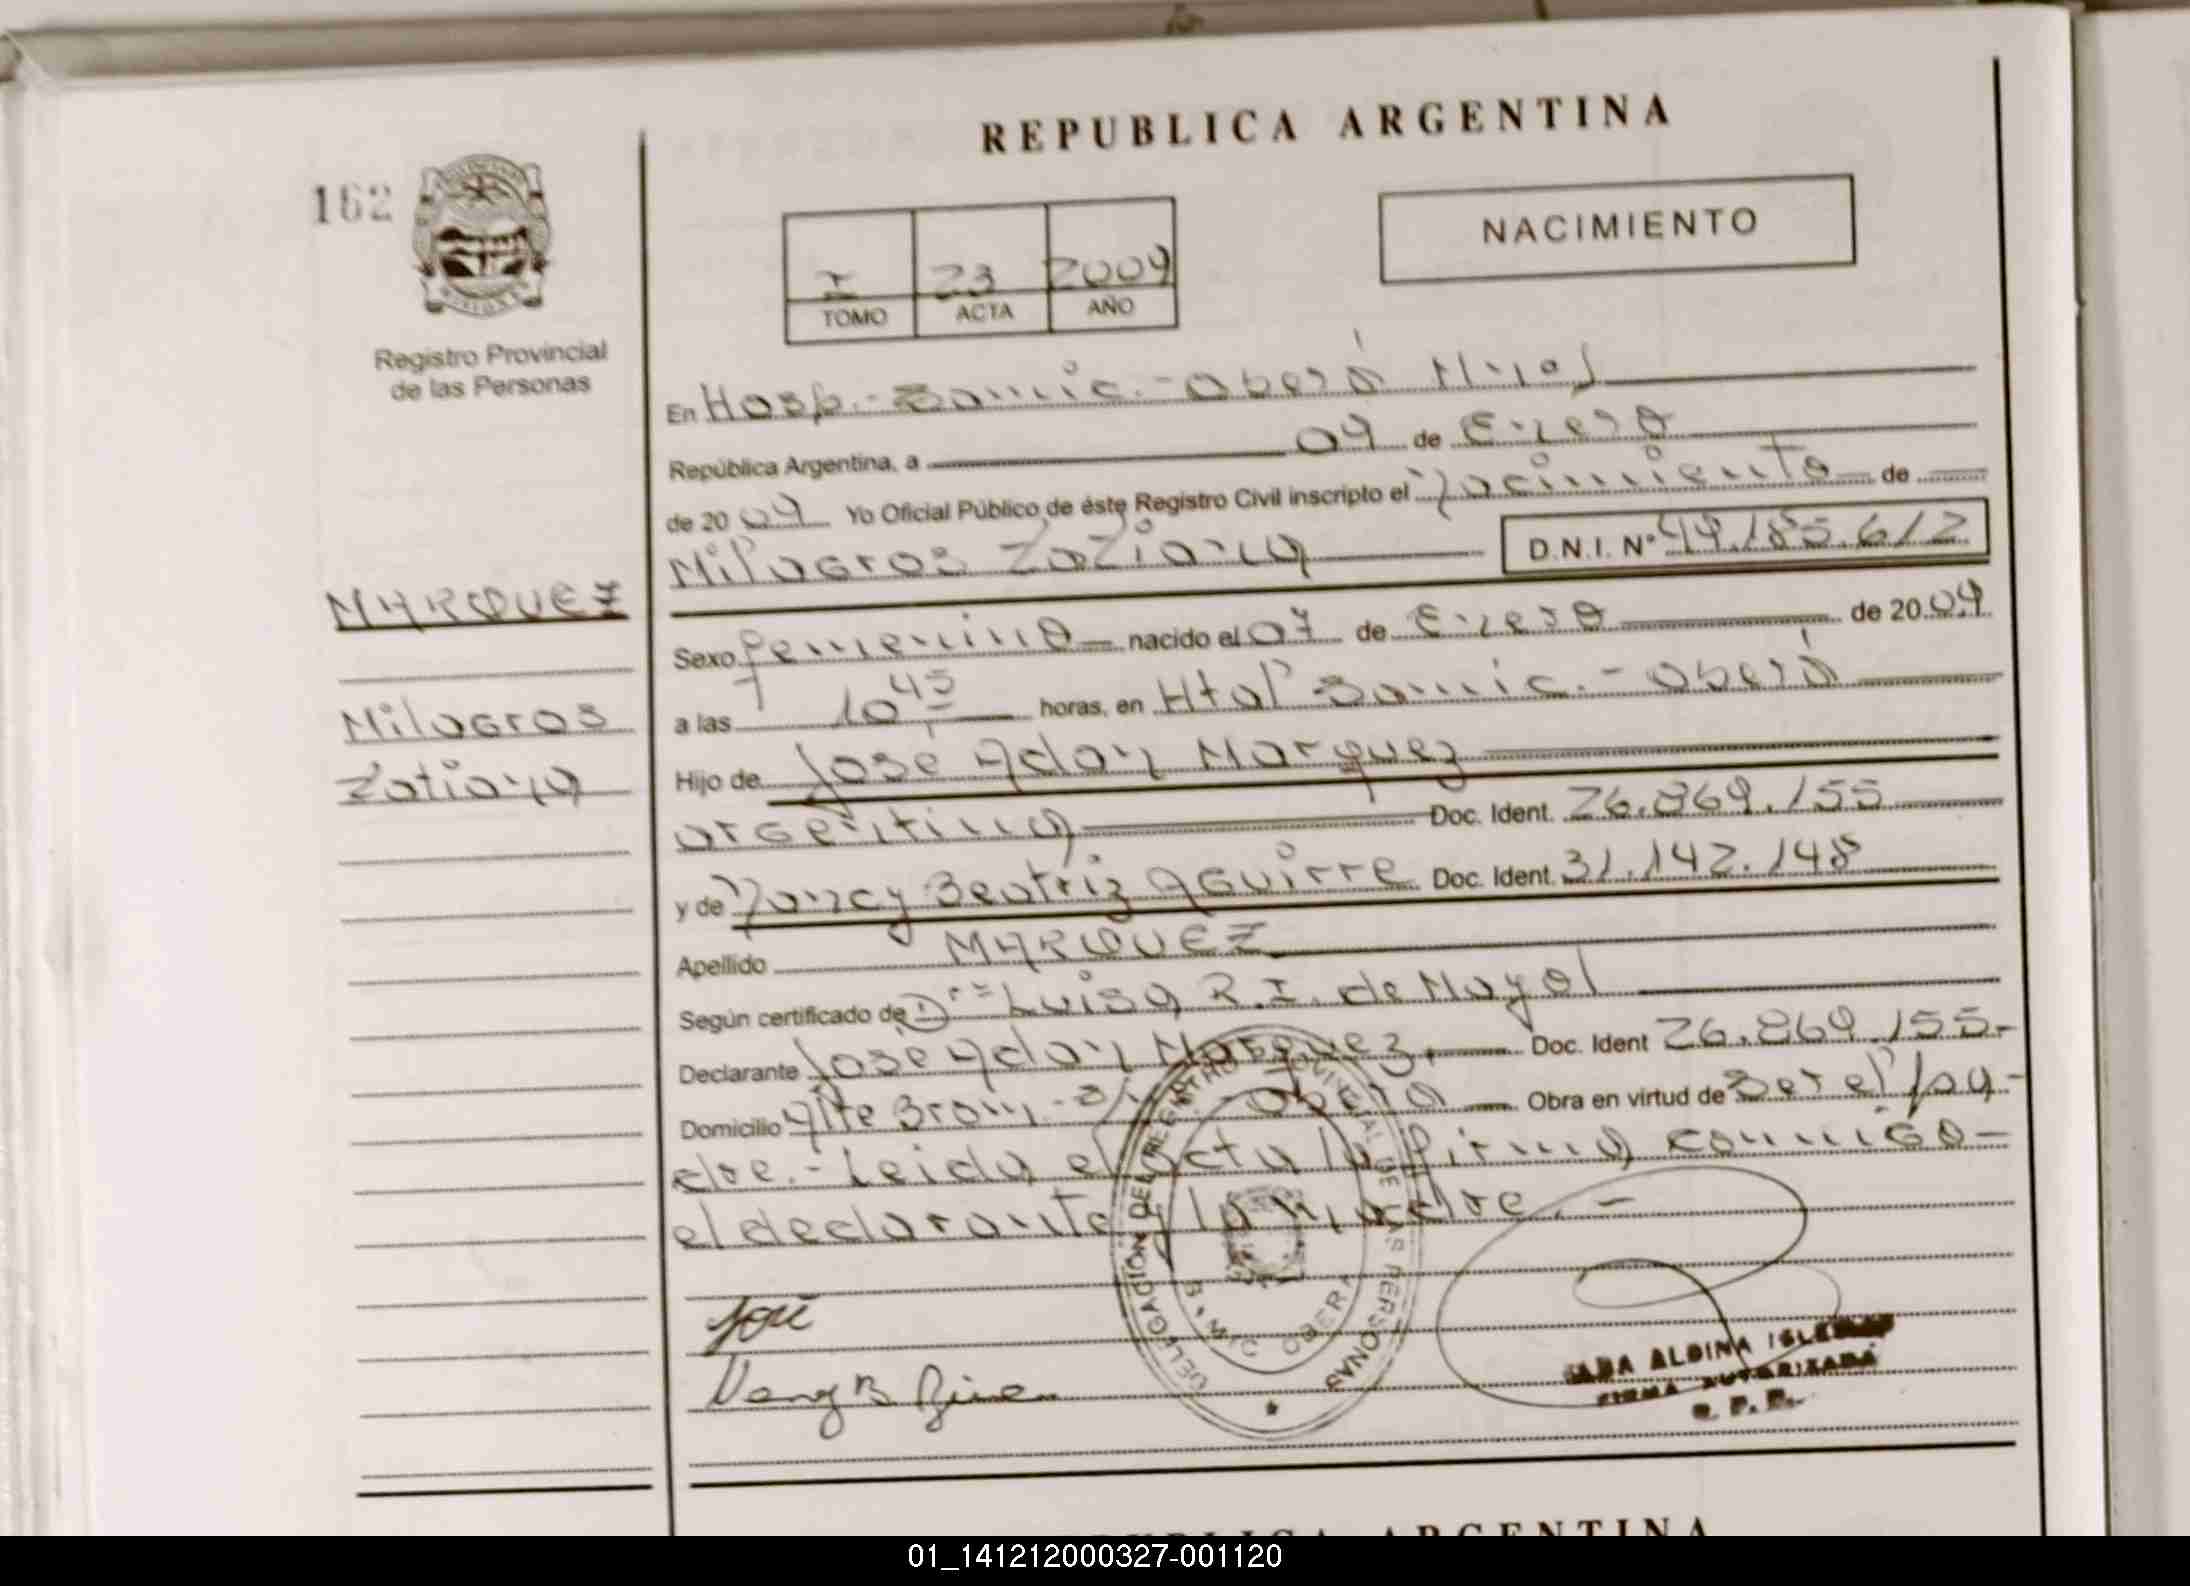 REPUBLICA ARGENTINA
162
NACIMIENTO
I 23 2009
TOMO ACTA AÑO
Registro Provincial
de las Personas
En Hosp.- Samic.- Oberá Mnes
República Argentina, a 09 de Enero
de 2009 Yo Oficial Público de éste Registro Civil inscripto el Nacimiento de
Milagros Tatiana D.N.I. Nº 49.185.612
MARQUEZ
Sexo femenino nacido el 07 de Enero de 2009
Milagros
a las 10,45 horas, en Htal Samic.- Oberá
Tatiana
Hijo de José Adan Marquez
argentina Doc. Ident. 26.869.155
y de Nancy Beatriz Aguirre Doc. Ident. 31.142.148
Apellido MARQUEZ
Según certificado de Dra Luisa R.I. de Mayol
Declarante José Adan Marquez, Doc. Ident 26.869.155-
Domicilio Alte Brown - S/N - Oberá Obra en virtud de Ser el pa-
dre.- Leida el acta la firma conmigo-
el declarante y la madre.-
José
DELEGACION DEL REGISTRO PROVINCIAL DE LAS PERSONAS
OBERA
ALDINA
FIRMA AUTORIZADA
R. P. P.
REPUBLICA ARGENTINA
01_141212000327-001120